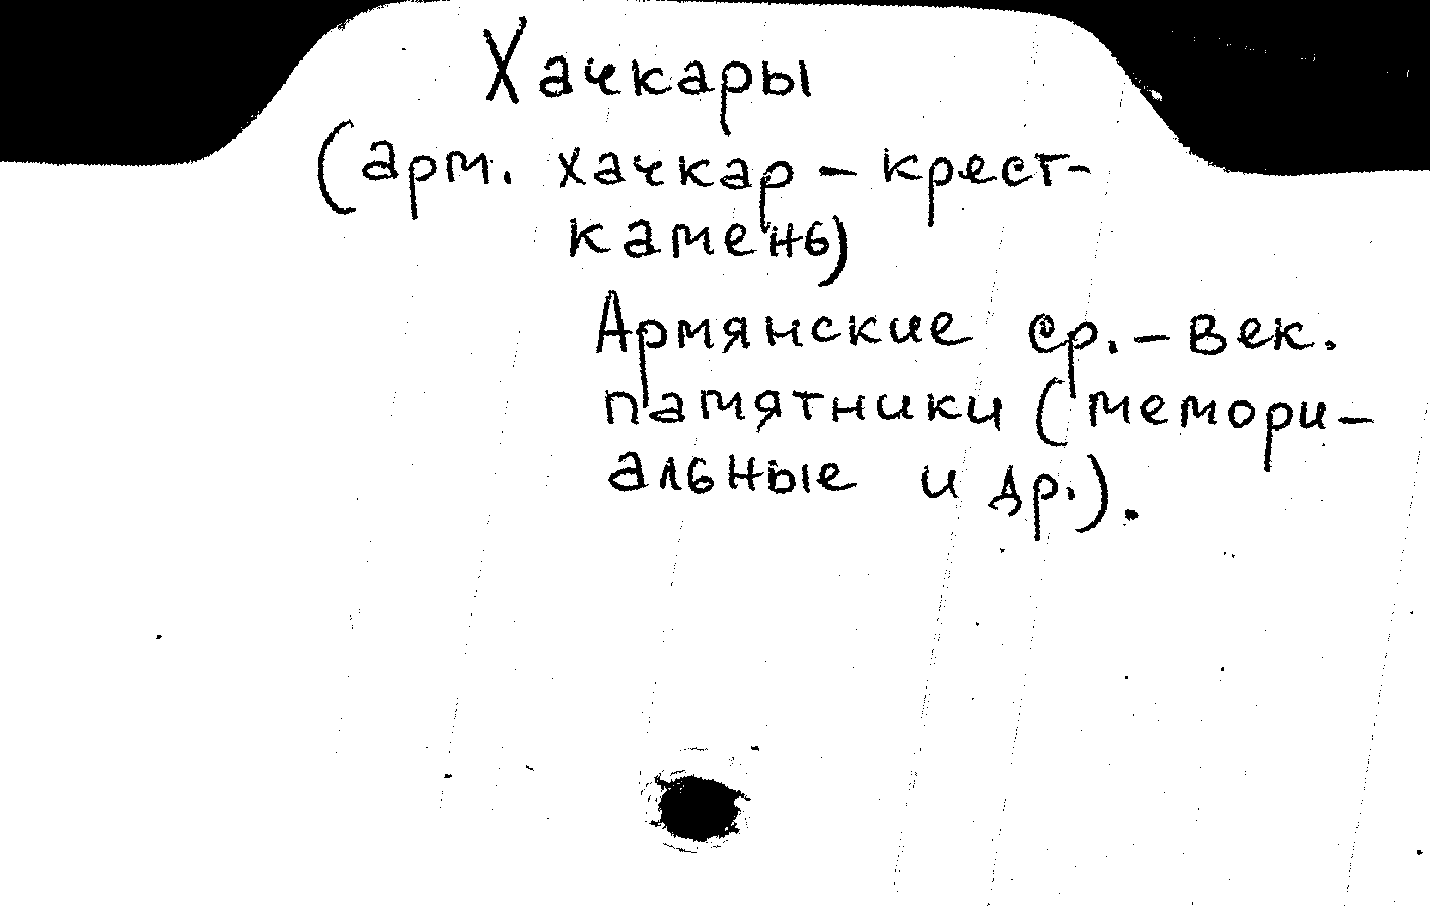 Хачкары
(арм. хачкар – крест-
камень)
Армянские ср.-век.
памятники (мемори-
альные и др.).